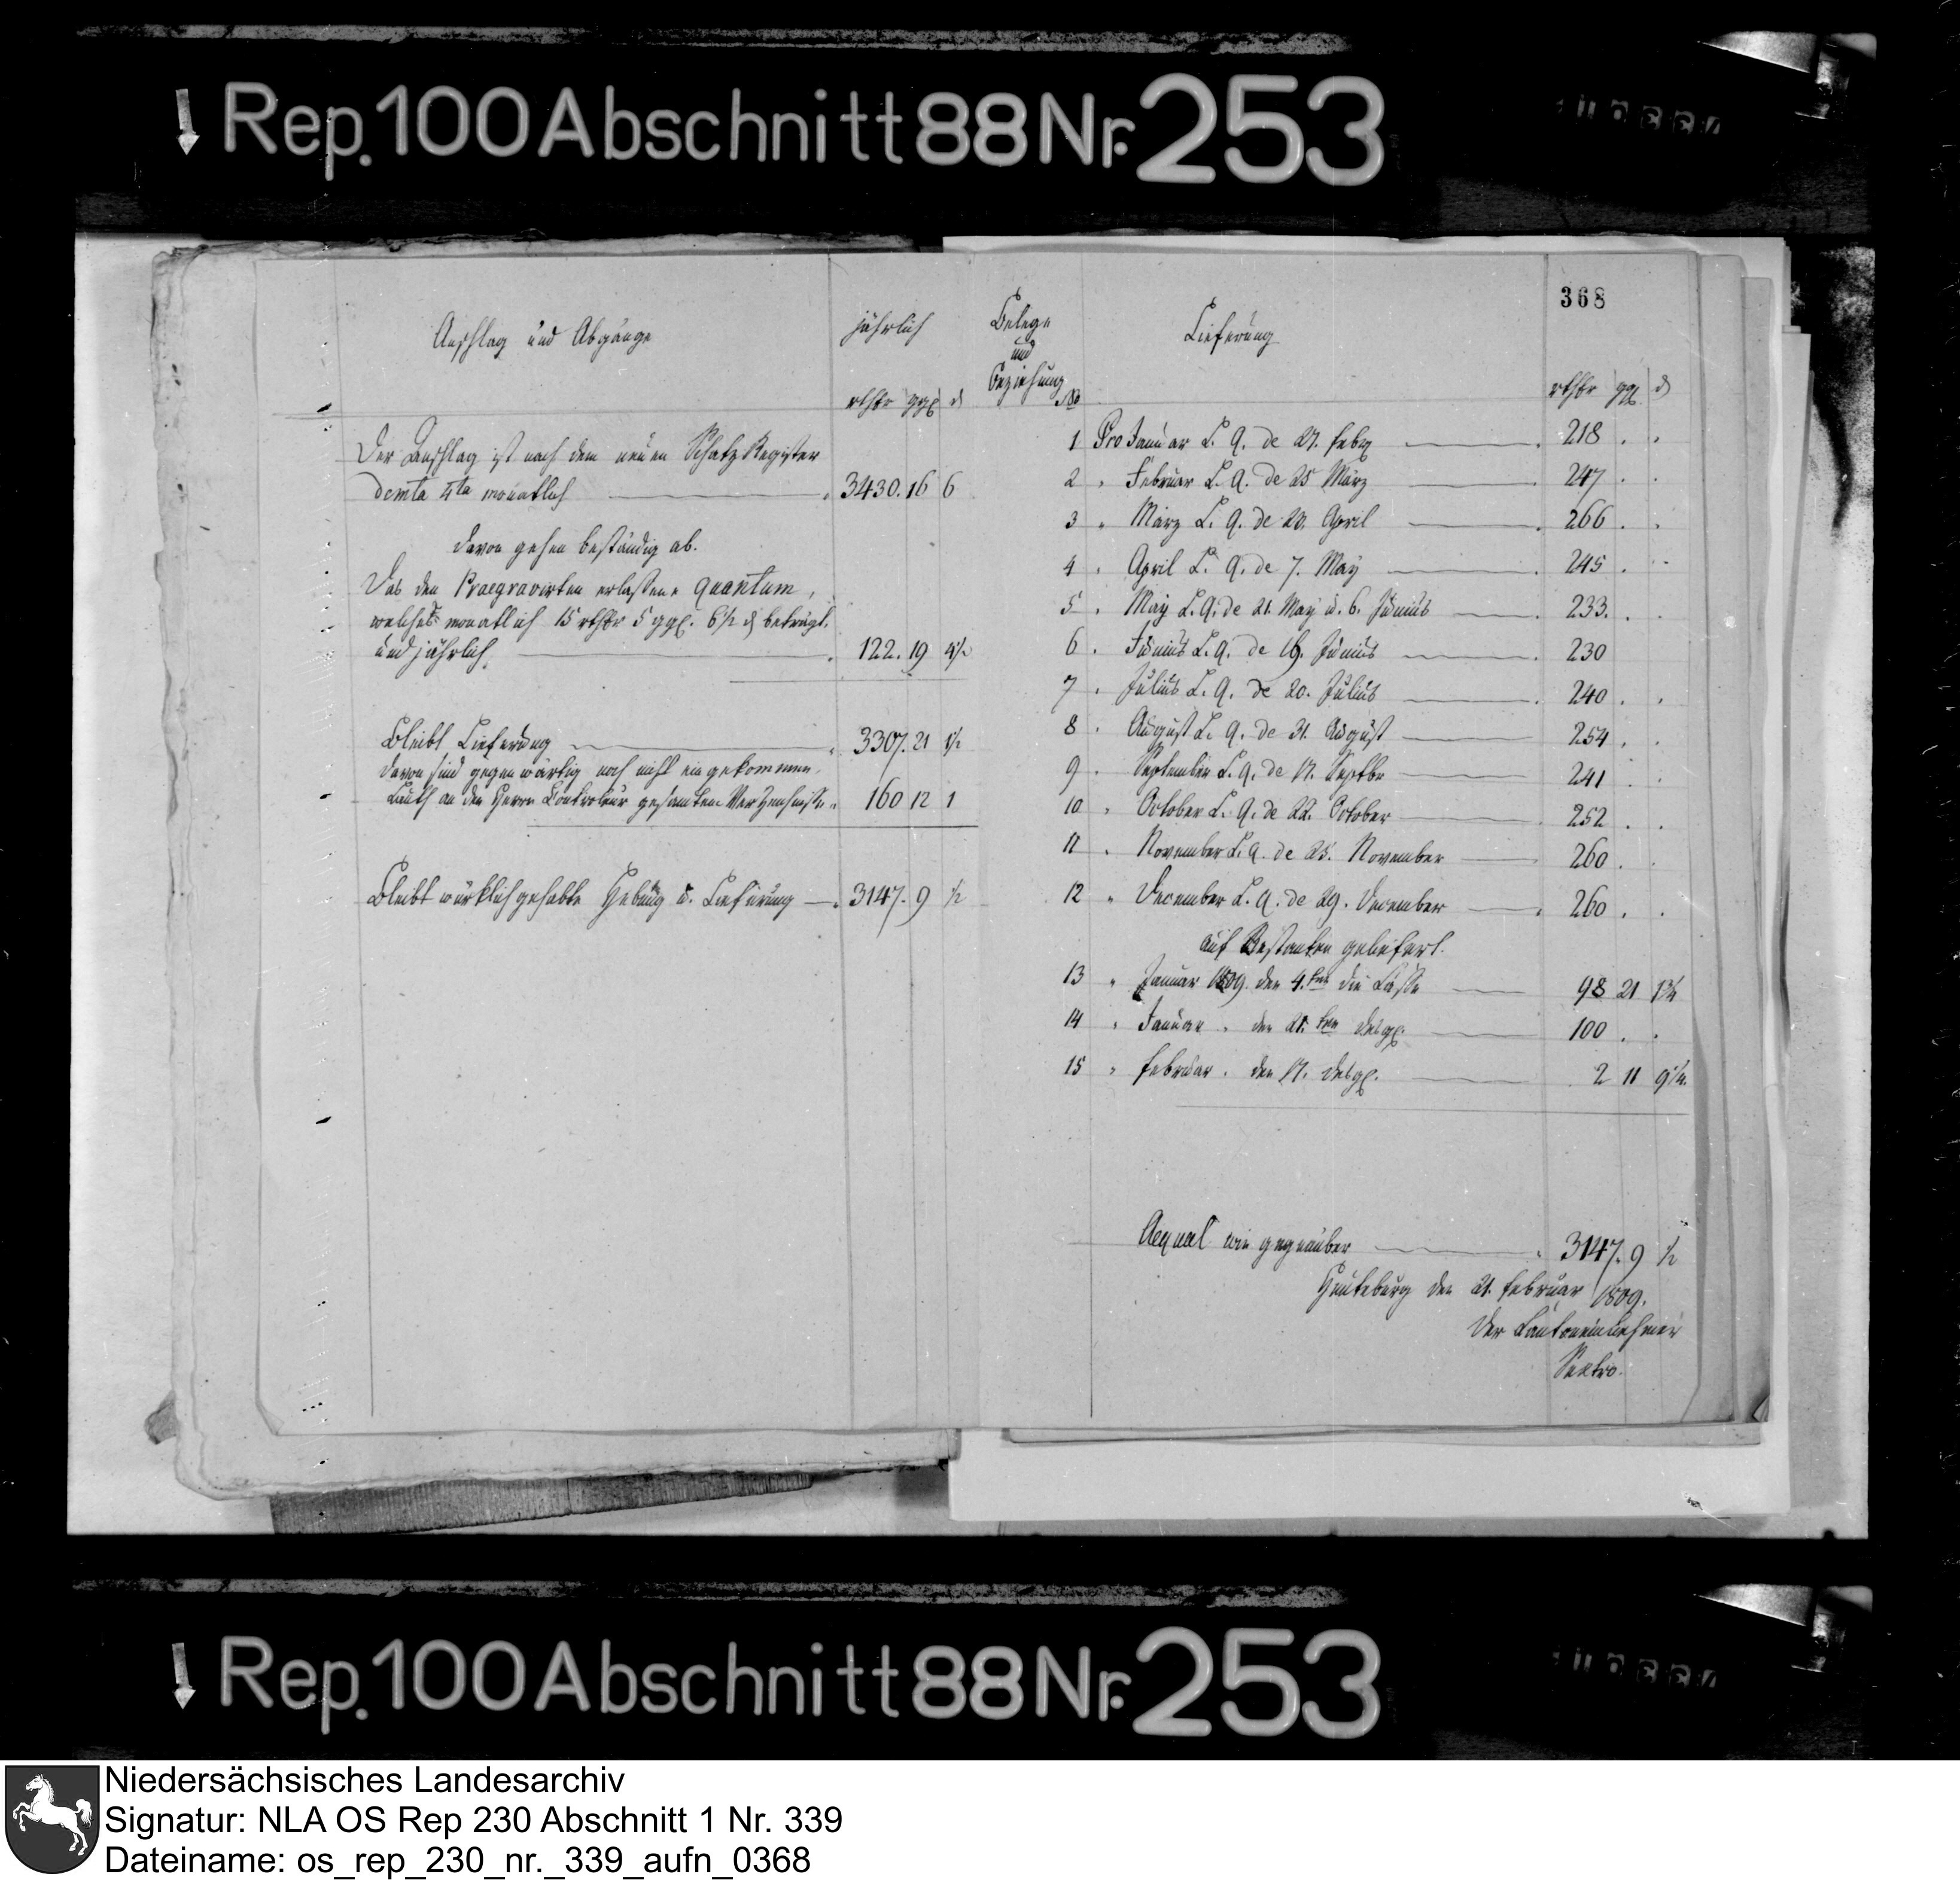 Rep. 100 Abschnitt 88 Nr. 253
368
Anschlag und Abgänge
jährlich
rthlr ggl d
Der Anschlag ist nach dem neuen Schatz Register
demta 4ta monatlich 3430. 16 6
Davon gehen beständig ab.
Das den Praegravirten erlaßene Quantum,
welches monatlich 15 rthlr 5 ggl. 6½ d beträgt.
und jährlich 122. 19 4½
Bleibt Lieferung 3307. 21 1½
Davon sind gegenwärtig noch nicht eingekommen,
Lauth an den Herrn Controleur gesandten Verzeichniße 160 12 1
Bleibt würklich gehabte Hebung u. Lieferung 3147. 9 ½
Belege
und
Beziehung
No
Lieferung
rthlr ggl d
1 Pro Januar L. Q. de 27. febrg 218 . .
2 " Februar L. Q. de 25 März 247 . .
3 " März L. Q. de 20. April 266 . .
4 " April L. Q. de 7. May 245 . .
5 " May L. Q. de 21. May u. 6. Junius 233. . .
6 " Junius L. Q. de 19. Junius 230
7 " Julius L. Q. de 20. Julius 240 . .
8 " August L. Q. de 31. August 254 . .
9 " September L. Q. de 17. Septbr 241 . .
10 " October L. Q. de 22. October 252 . .
11 " November L. Q. de 25. November 260 . .
12 " December L. Q. de 29. December 260 . .
auf Restanten geliefert.
13 " Januar 1809. den 4.ten die Casse 98 21 1¾
14 " Januar " den 21.ten desgl. 100 . .
15 " februar " den 17. desgl. 2 11 9¼.
Aequal wie gegenüber 3147. 9 ½
Hunteburg den 21. februar 1809.
Der Cantoneinnehmer
Sextro.
Rep. 100 Abschnitt 88 Nr. 253
Niedersächsisches Landesarchiv
Signatur: NLA OS Rep 230 Abschnitt 1 Nr. 339
Dateiname: os_rep_230_nr._339_aufn_0368